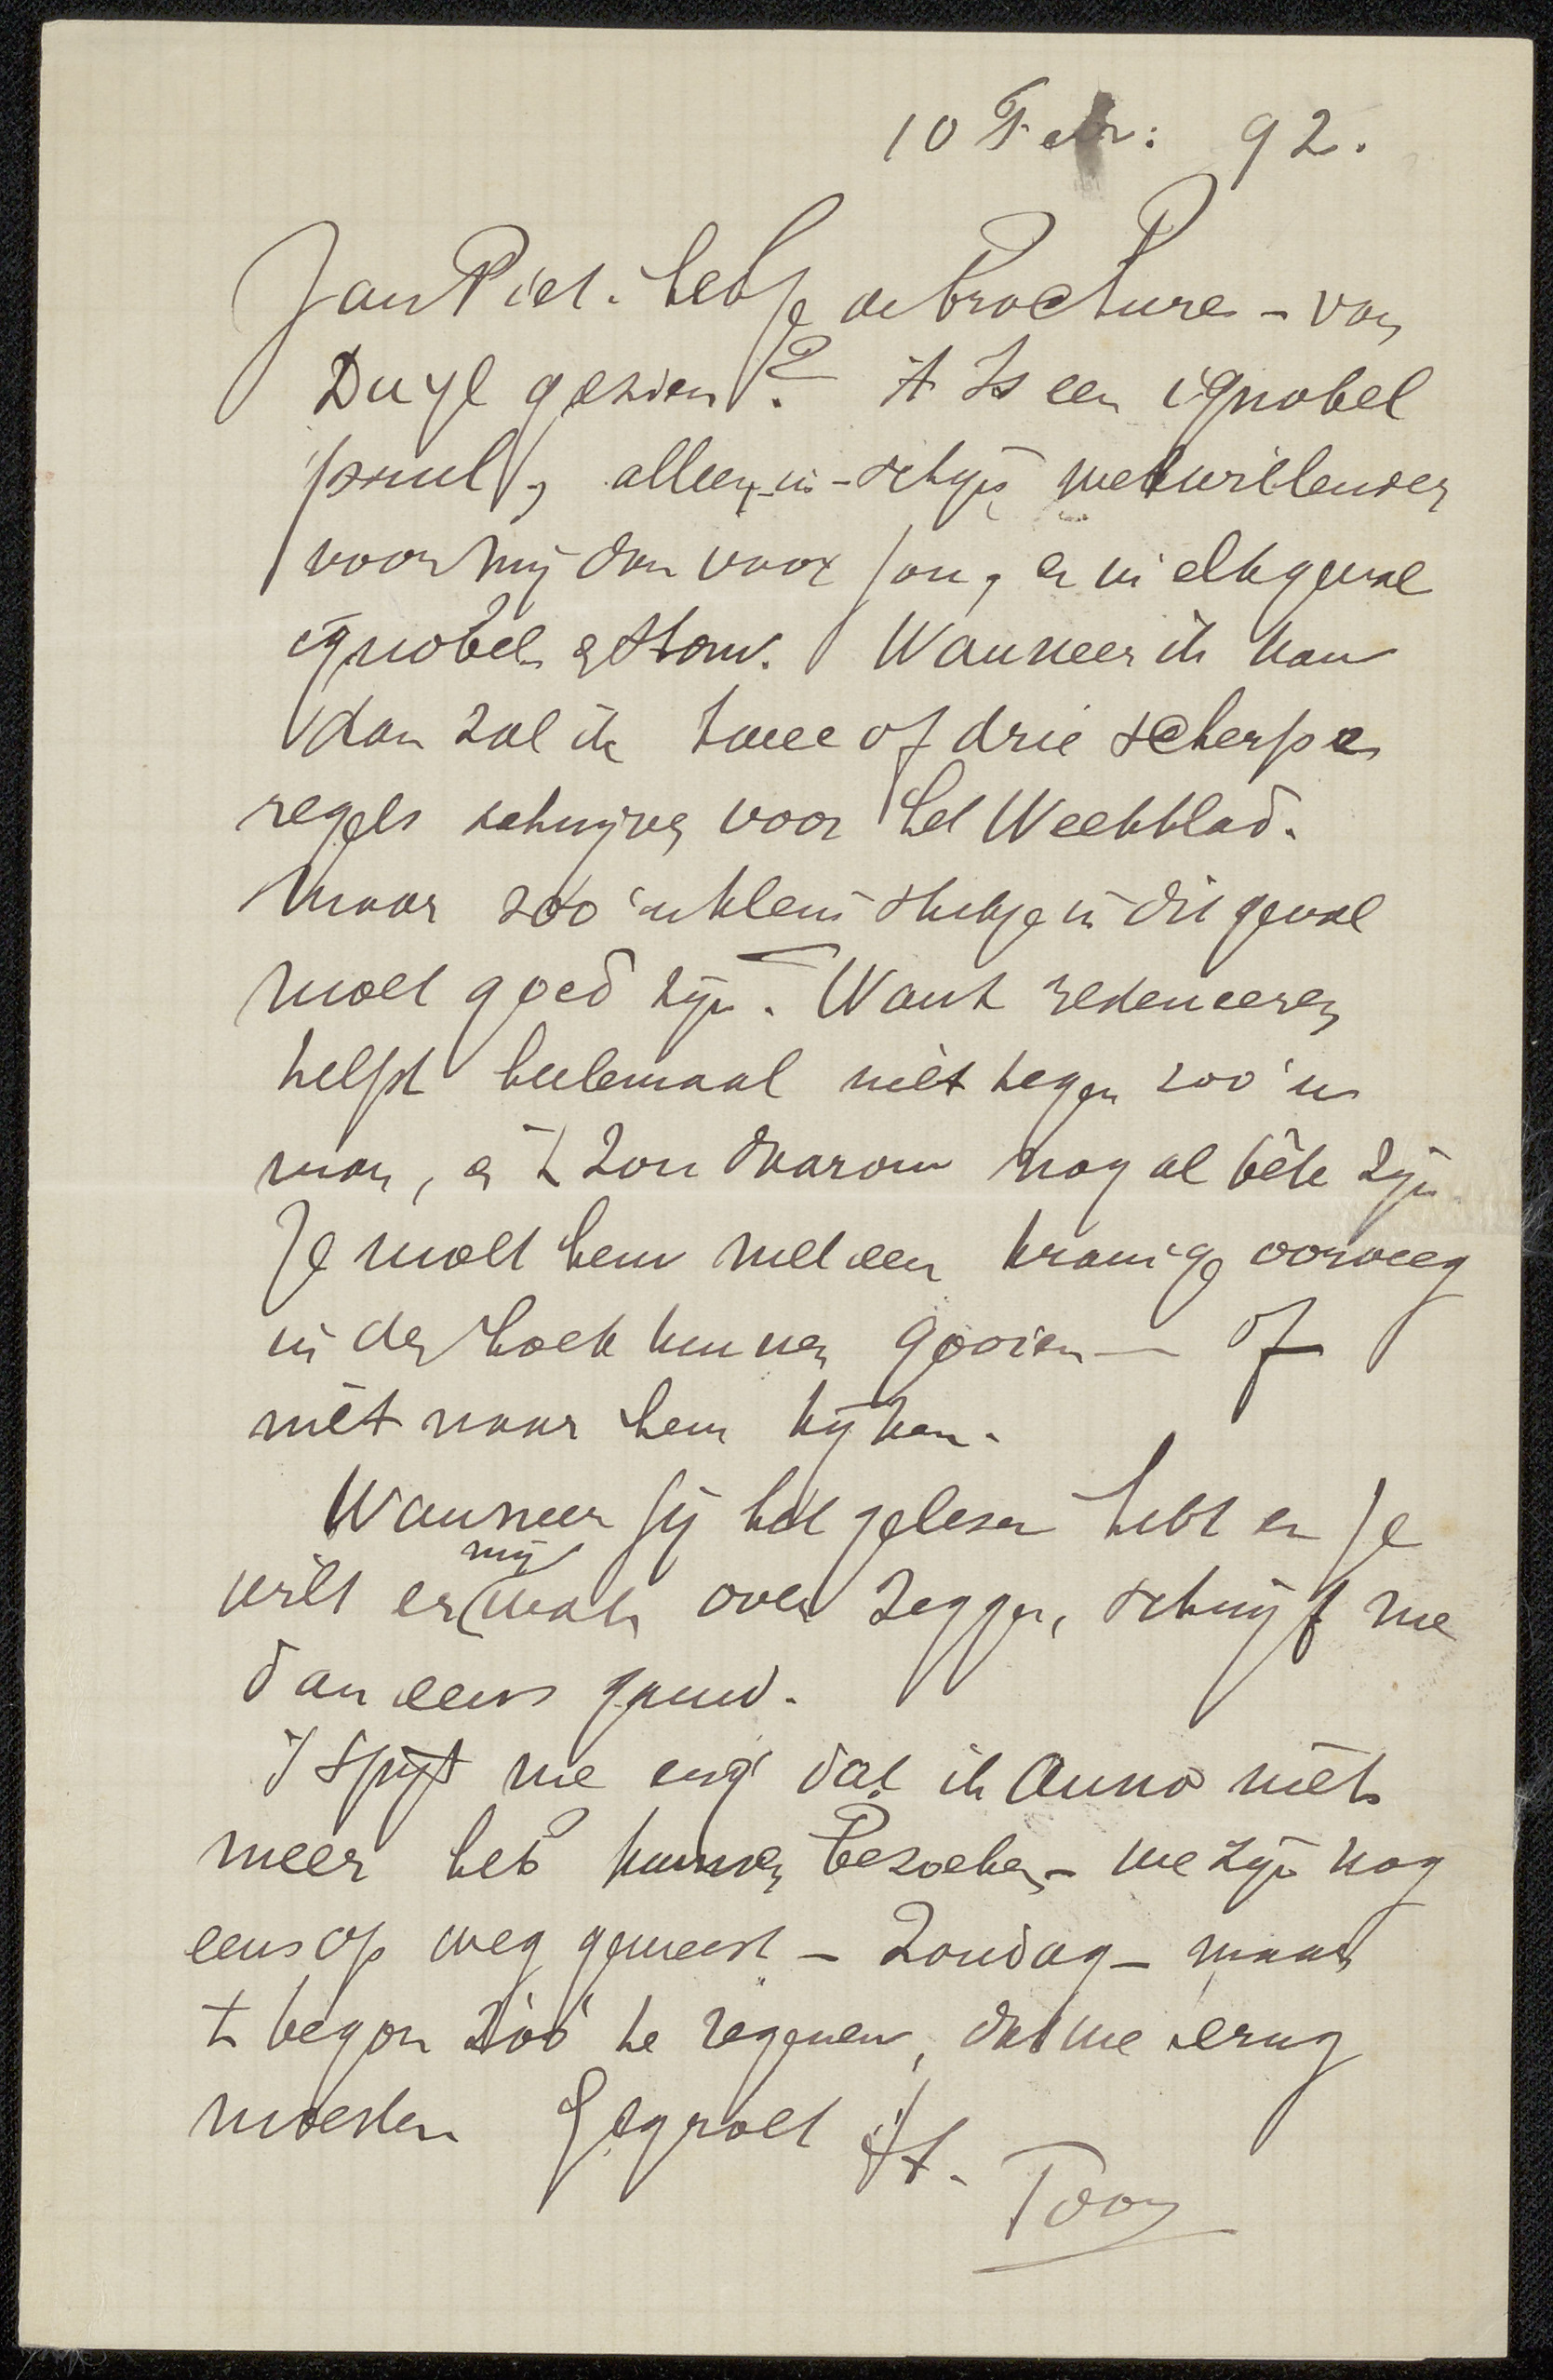 10 Febr: 92.
Jan Piet. heb je de brochure - van
Duyl gezien? 't Is een ignobel
prul, alleen-in-schijn welwillender
voor mij dan voor jou, en in elk geval
ignobel en stom. Wanneer ik kan
dan zal ik twee of drie scherpe
regels schrijven voor het Weekblad.
Maar zoo'n klein stukje in dit geval
moet goed zijn. Want redeneeren
helpt heelemaal niet tegen zoo'n
man, en 't zou daarom nog al bête zijn
Je moet hem met een kranige oorveeg
in den hoek kunnen gooien — of
niet naar hem kijken.
Wanneer jij het gelezen hebt en je
wilt er mij wat over zeggen, schrijf me
dan eens gauw.
't Spijt me erg dat ik Anna niet
meer heb kunnen bezoeken - we zijn nog
eens op weg geweest - Zondag - maar
't begon zóó te regenen, dat we terug
moesten Gegroet
Toon